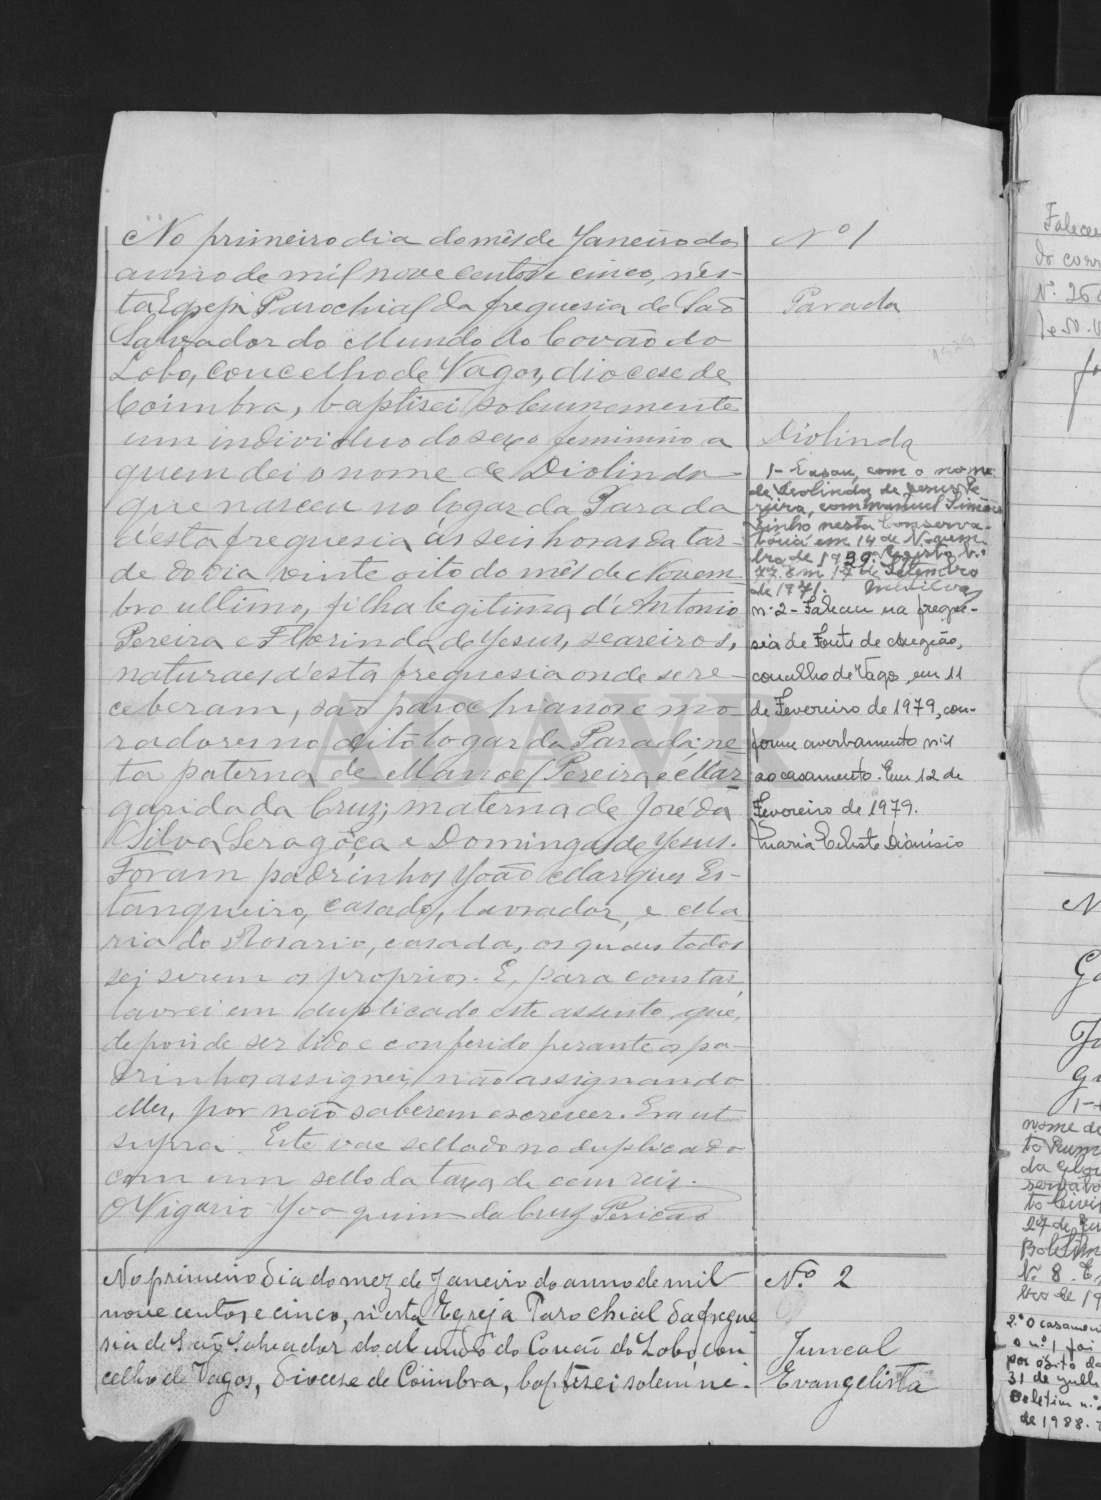 No primeiro dia do mês de Janeiro do
anno de mil nove centos e cinco, n'es-
ta Egreja Parochial da freguesia de São
Salvador do Mundo do Covão do
Lobo, concelho de Vagos, diocese de
Coimbra, baptisei solemnemente
um individuo do sexo feminino a
quem dei o nome de Diolinda
que nasceu no logar da Parada
d'esta freguesia ás seis horas da tar-
de do dia vinte oito do mês de Novem-
bro ultimo, filha legitima d'Antonio
Pereira e Florinda de Jesus, seareiros,
naturaes d'esta freguesia onde se re-
ceberam, são parochianos e mo-
radores no dito logar da Parada; ne-
ta paterna de Manoel Pereira e Mar-
garida da Cruz; materna de José da
Silva Seragoça e Domingas de Jesus.
Foram padrinhos João Marques Es-
tanqueiro, casado, lavrador, e Ma-
ria do Rosario, casada, os quaes todos
sei serem os proprios. E, para constar,
lavrei em duplicado este assento, que,
depois de ser lido e conferido perante os pa-
drinhos assignei, não assignando
elles, por não saberem escrever. Era ut
supra. Este vae sellado no duplicado
com um sello da taxa de cem reis.
O Vigario Joaquim da Cruz Pericão
Nº 1
Parada
Diolinda
1- Casou, com o nome
de Deolinda de Jesus Pe-
reira, com Manuel Simões
nesta Conserva-
toria em 14 de Novem-
bro de 1939. Registo nº
77. Em 17 de Setembro
de 1971.
nº 2 - Faleceu na fregue-
sia de Fonte de Angeão,
concelho de Vagos, em 11
de Fevereiro de 1979, con-
forme averbamento nº 1
ao casamento. Em 12 de
Fevereiro de 1979.
Maria Celeste Dionisio
No primeiro dia do mez de Janeiro do anno de mil
nove centos e cinco, n'esta Egreja Parochial da fregue-
sia de São Salvador do Mundo do Covão do Lobo, con
celho de Vagos, diocese de Coimbra, baptisei solemne-
Nº 2
Juncal
Evangelista
ADAVR
Falece
do corr
Nº 260
nome de
27 de
Nº 8. E
bro de 19
2.º O casamen
o nº 1, foi
por óbito da
31 de
Boletim nº
de 1988.